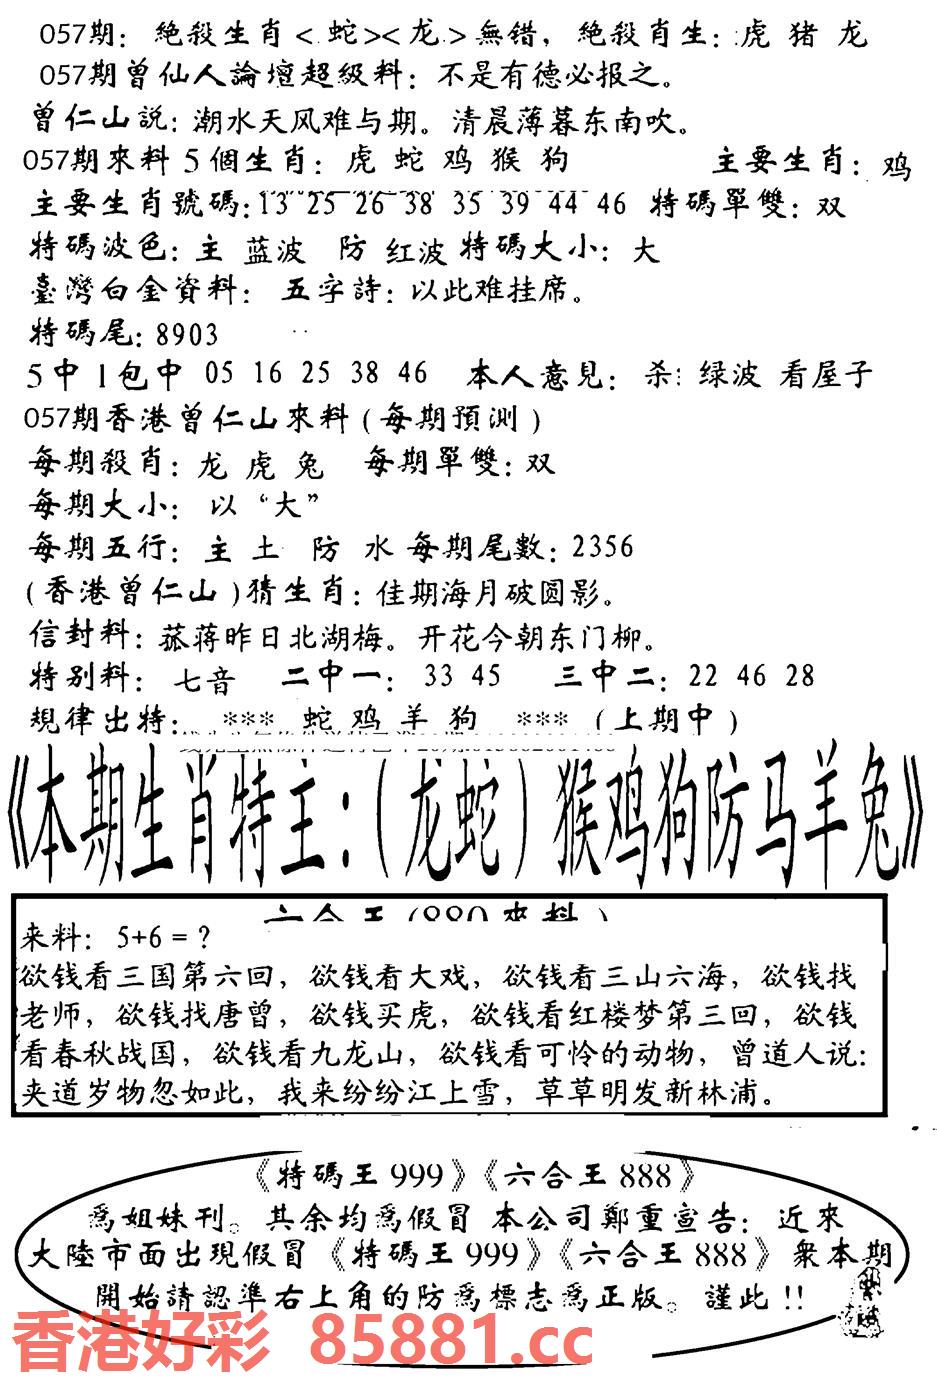 057期：絶殺生肖<蛇><龙>無错，絶殺肖生：虎 猪 龙
057期曾仙人論壇超級料：不是有德必报之。
曾仁山説：潮水天风难与期。清晨薄暮东南吹。
057期來料 5 個生肖：虎 蛇 鸡 猴 狗 主要生肖：鸡
主要生肖號碼：13 25 26 38 35 39 44 46 特碼單雙：双
特碼波色：主 蓝波 防 红波 特碼大小：大
臺灣白金資料：五字詩：以此难挂席。
特碼尾：8903
5中1包中 05 16 25 38 46 本人意見：杀：绿波 看屋子
057期香港曾仁山來料(每期預測)
每期殺肖：龙 虎 兔 每期單雙：双
每期大小：以“大”
每期五行：主 土 防 水 每期尾數：2356
(香港曾仁山)猜生肖：佳期海月破圆影。
信封料：菰蒋昨日北湖梅。开花今朝东门柳。
特别料：七音 二中一：33 45 三中二：22 46 28
規律出特： *** 蛇 鸡 羊 狗 *** (上期中)
《本期生肖特主：(龙蛇)猴鸡狗防马羊兔》
六合王(880來料)
来料：5+6=？
欲钱看三国第六回，欲钱看大戏，欲钱看三山六海，欲钱找
老师，欲钱找唐曾，欲钱买虎，欲钱看红楼梦第三回，欲钱
看春秋战国，欲钱看九龙山，欲钱看可怜的动物，曾道人说：
夹道岁物忽如此，我来纷纷江上雪，草草明发新林浦。
《特碼王999》《六合王888》
爲姐妹刊。其余均爲假冒 本公司鄭重宣告：近來
大陸市面出現假冒《特碼王999》《六合王888》衆本期
開始請認準右上角的防爲標志爲正版。謹此!!
香港好彩 85881.cc